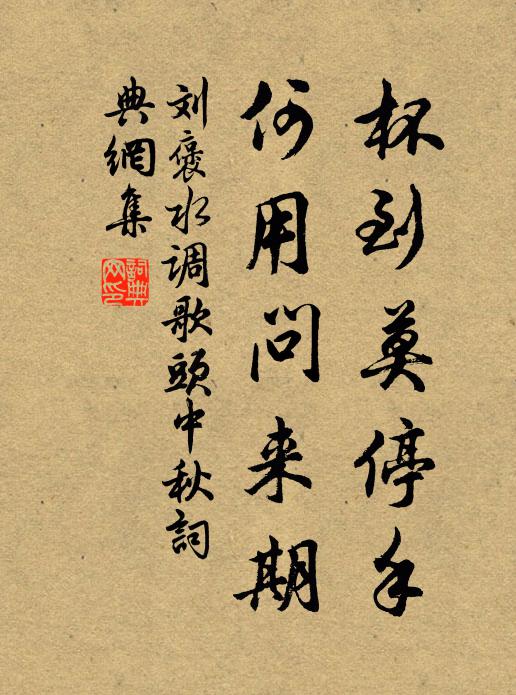 杯到莫停手
何用问来期
刘褒水调歌頭中秋詞
典網集
詞典网印